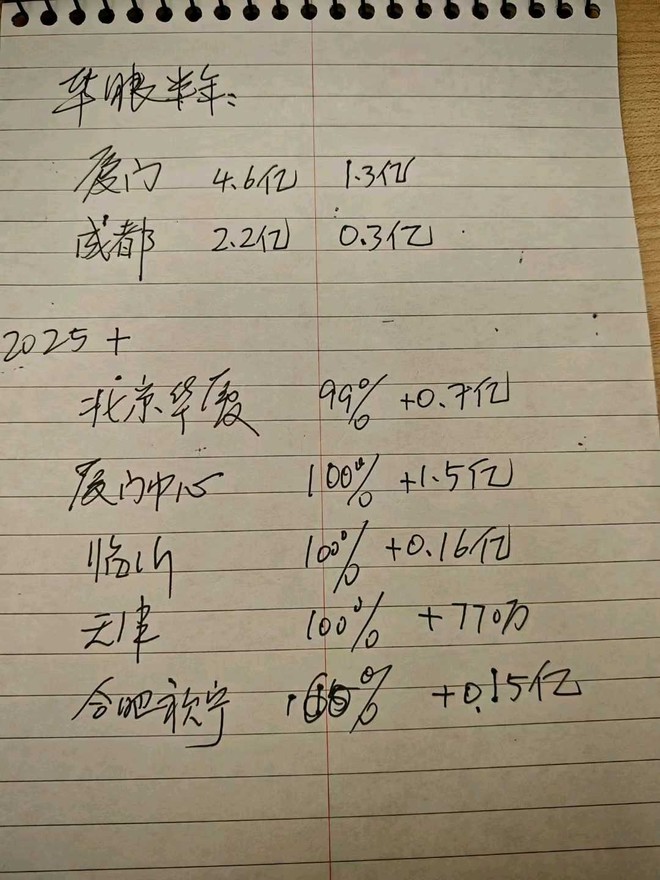 华眼半年:
厦门 4.6亿 1.3亿
成都 2.2亿 0.3亿
2025+
北京华厦 99% +0.7亿
厦门中心 100% +1.5亿
临沂 100% +0.16亿
天津 100% +770万
合肥 % +0.15亿